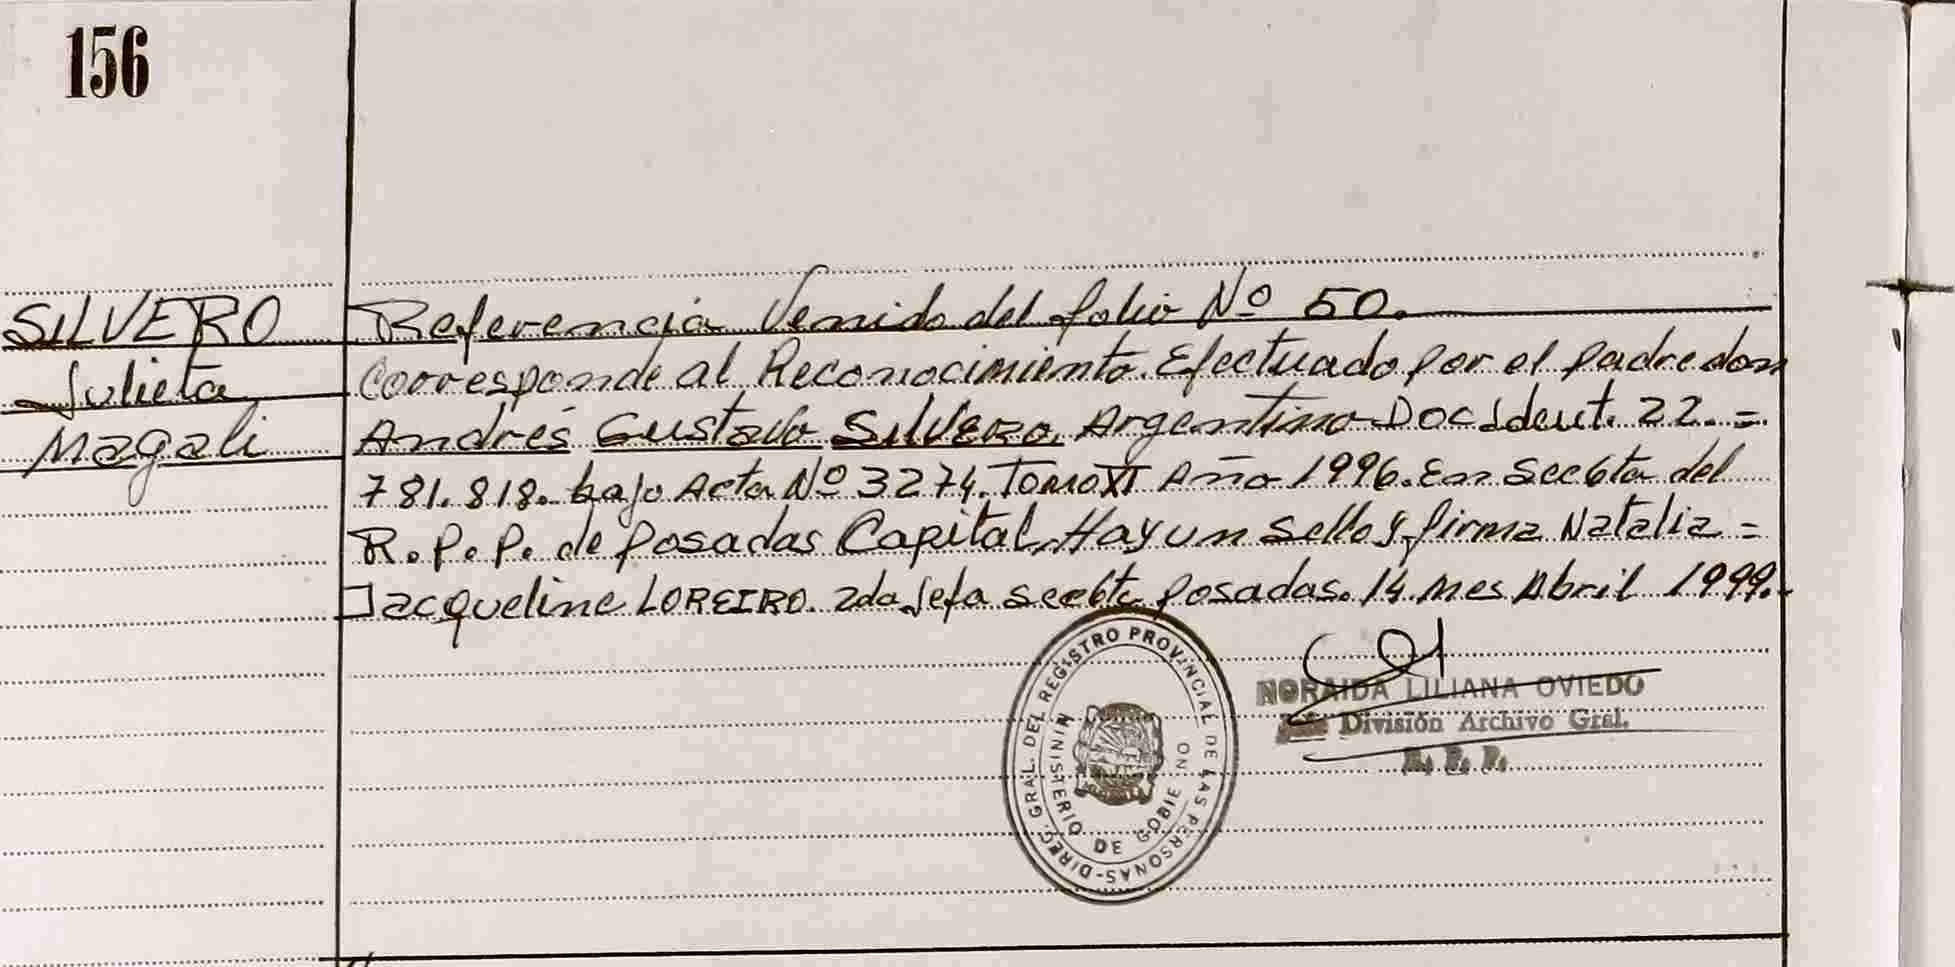 156
SILVERO
Julieta
Magali
Referencia Venido del folio Nº 50.
Corresponde al Reconocimiento. Efectuado por el padre don
Andrés Gustavo Silvero, Argentino Doc Ident. 22. =
781.818. bajo Acta Nº 3274. Tomo XI Año 1996. En Seccta del
R. P. P. de Posadas Capital, Hay un Sello y firma Natalia =
Jacqueline LOREIRO. 2da Jefa Seccta Posadas. 14 mes Abril 1999.-
DIREC. GRAL. DEL REGISTRO PROVINCIAL DE LAS PERSONAS-
MINISTERIO DE GOBIERNO
NORAIDA LILIANA OVIEDO
División Archivo Gral.
R. P. P.